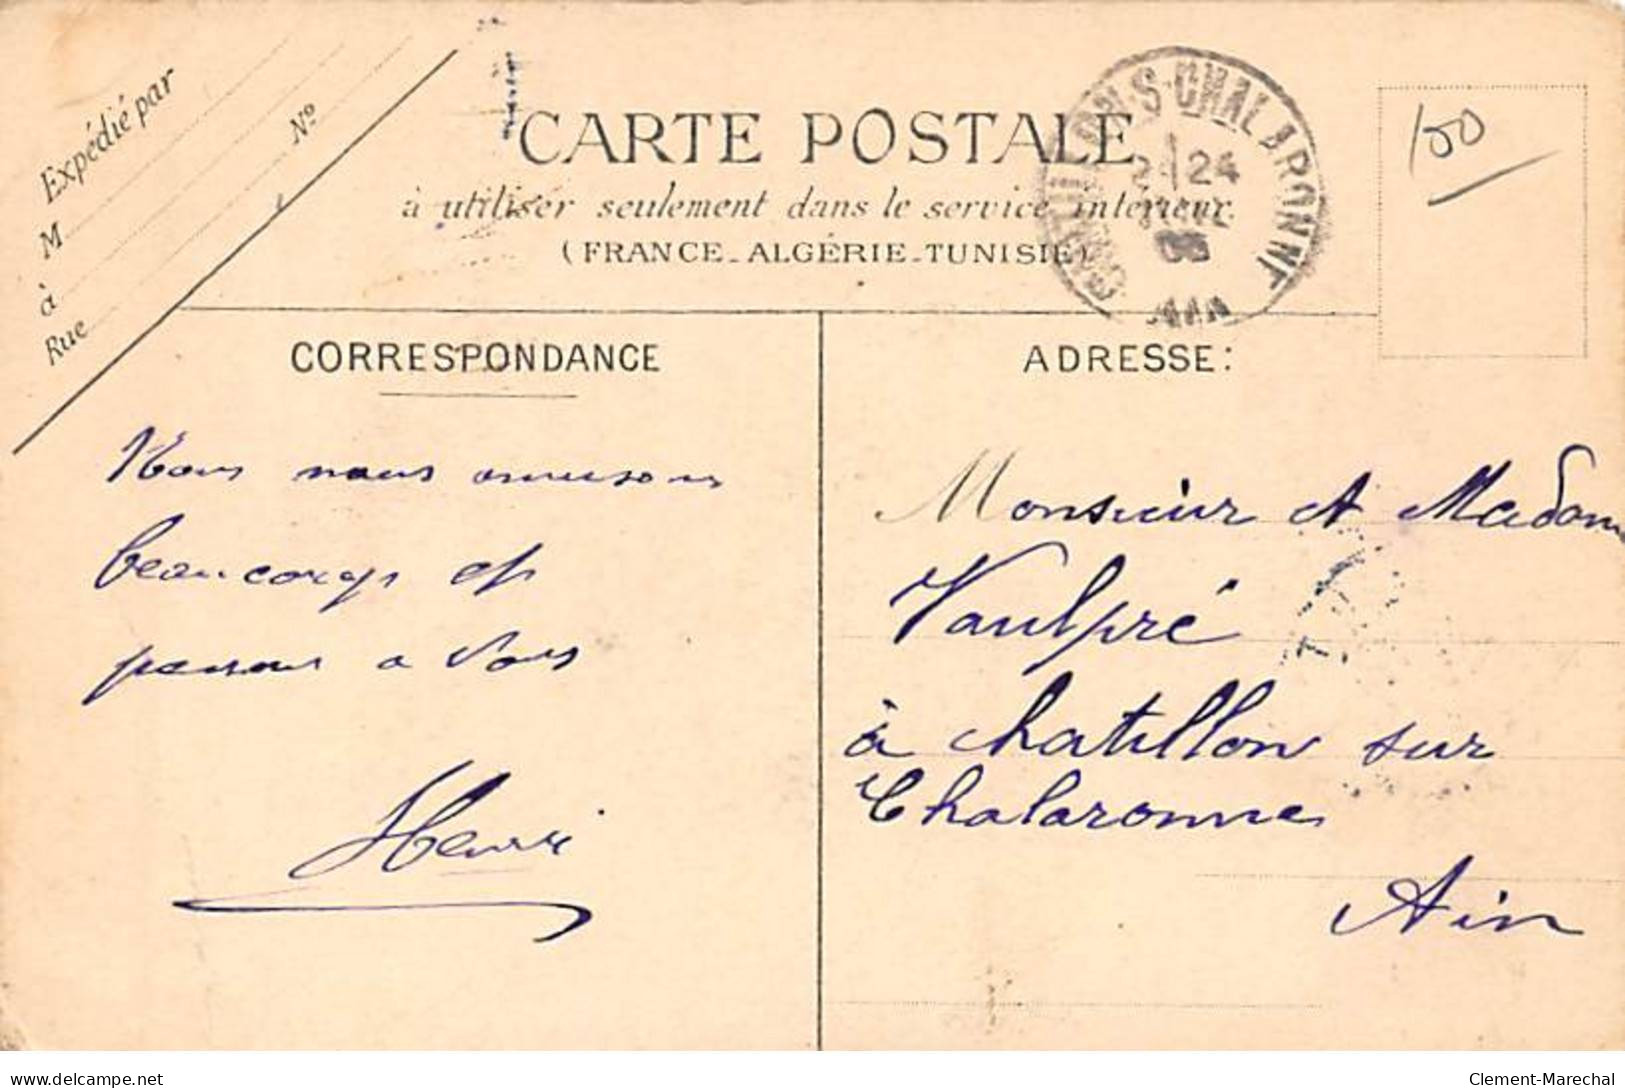 Expédié par
M
à
Rue
Nº
CARTE POSTALE
à utiliser seulement dans le service intérieur.
(FRANCE-ALGÉRIE-TUNISIE)
CHATILLON-S-CHALARONNE
24
AIN
100
CORRESPONDANCE
Nous nous amusons
beaucoup et
pensons a vous
Henri
ADRESSE:
Monsieur et Madame
Vaulpré
à Chatillon sur
Chalaronne
Ain
delcampe.net
Clement-Marechal